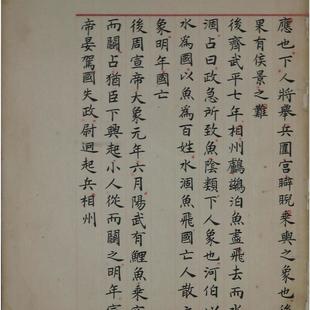 應也下人將舉兵圍宮睥睨乘輿之象也後
果有侯景之難
後齊武平七年相州鸕鶿泊魚盡飛去而水
涸占曰政急所致魚陰類下人象也河伯以
水為國以魚為百姓水涸魚飛國亡人散之
象明年國亡
後周宣帝大象元年六月陽武有鯉魚乘空
而鬬占猶臣下興起小人從而鬬之明年宣
帝晏駕國失政尉迥起兵相州